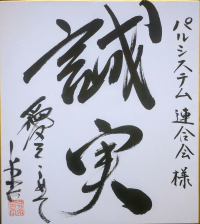 パルシステム連合会様
誠実
愛をこめて